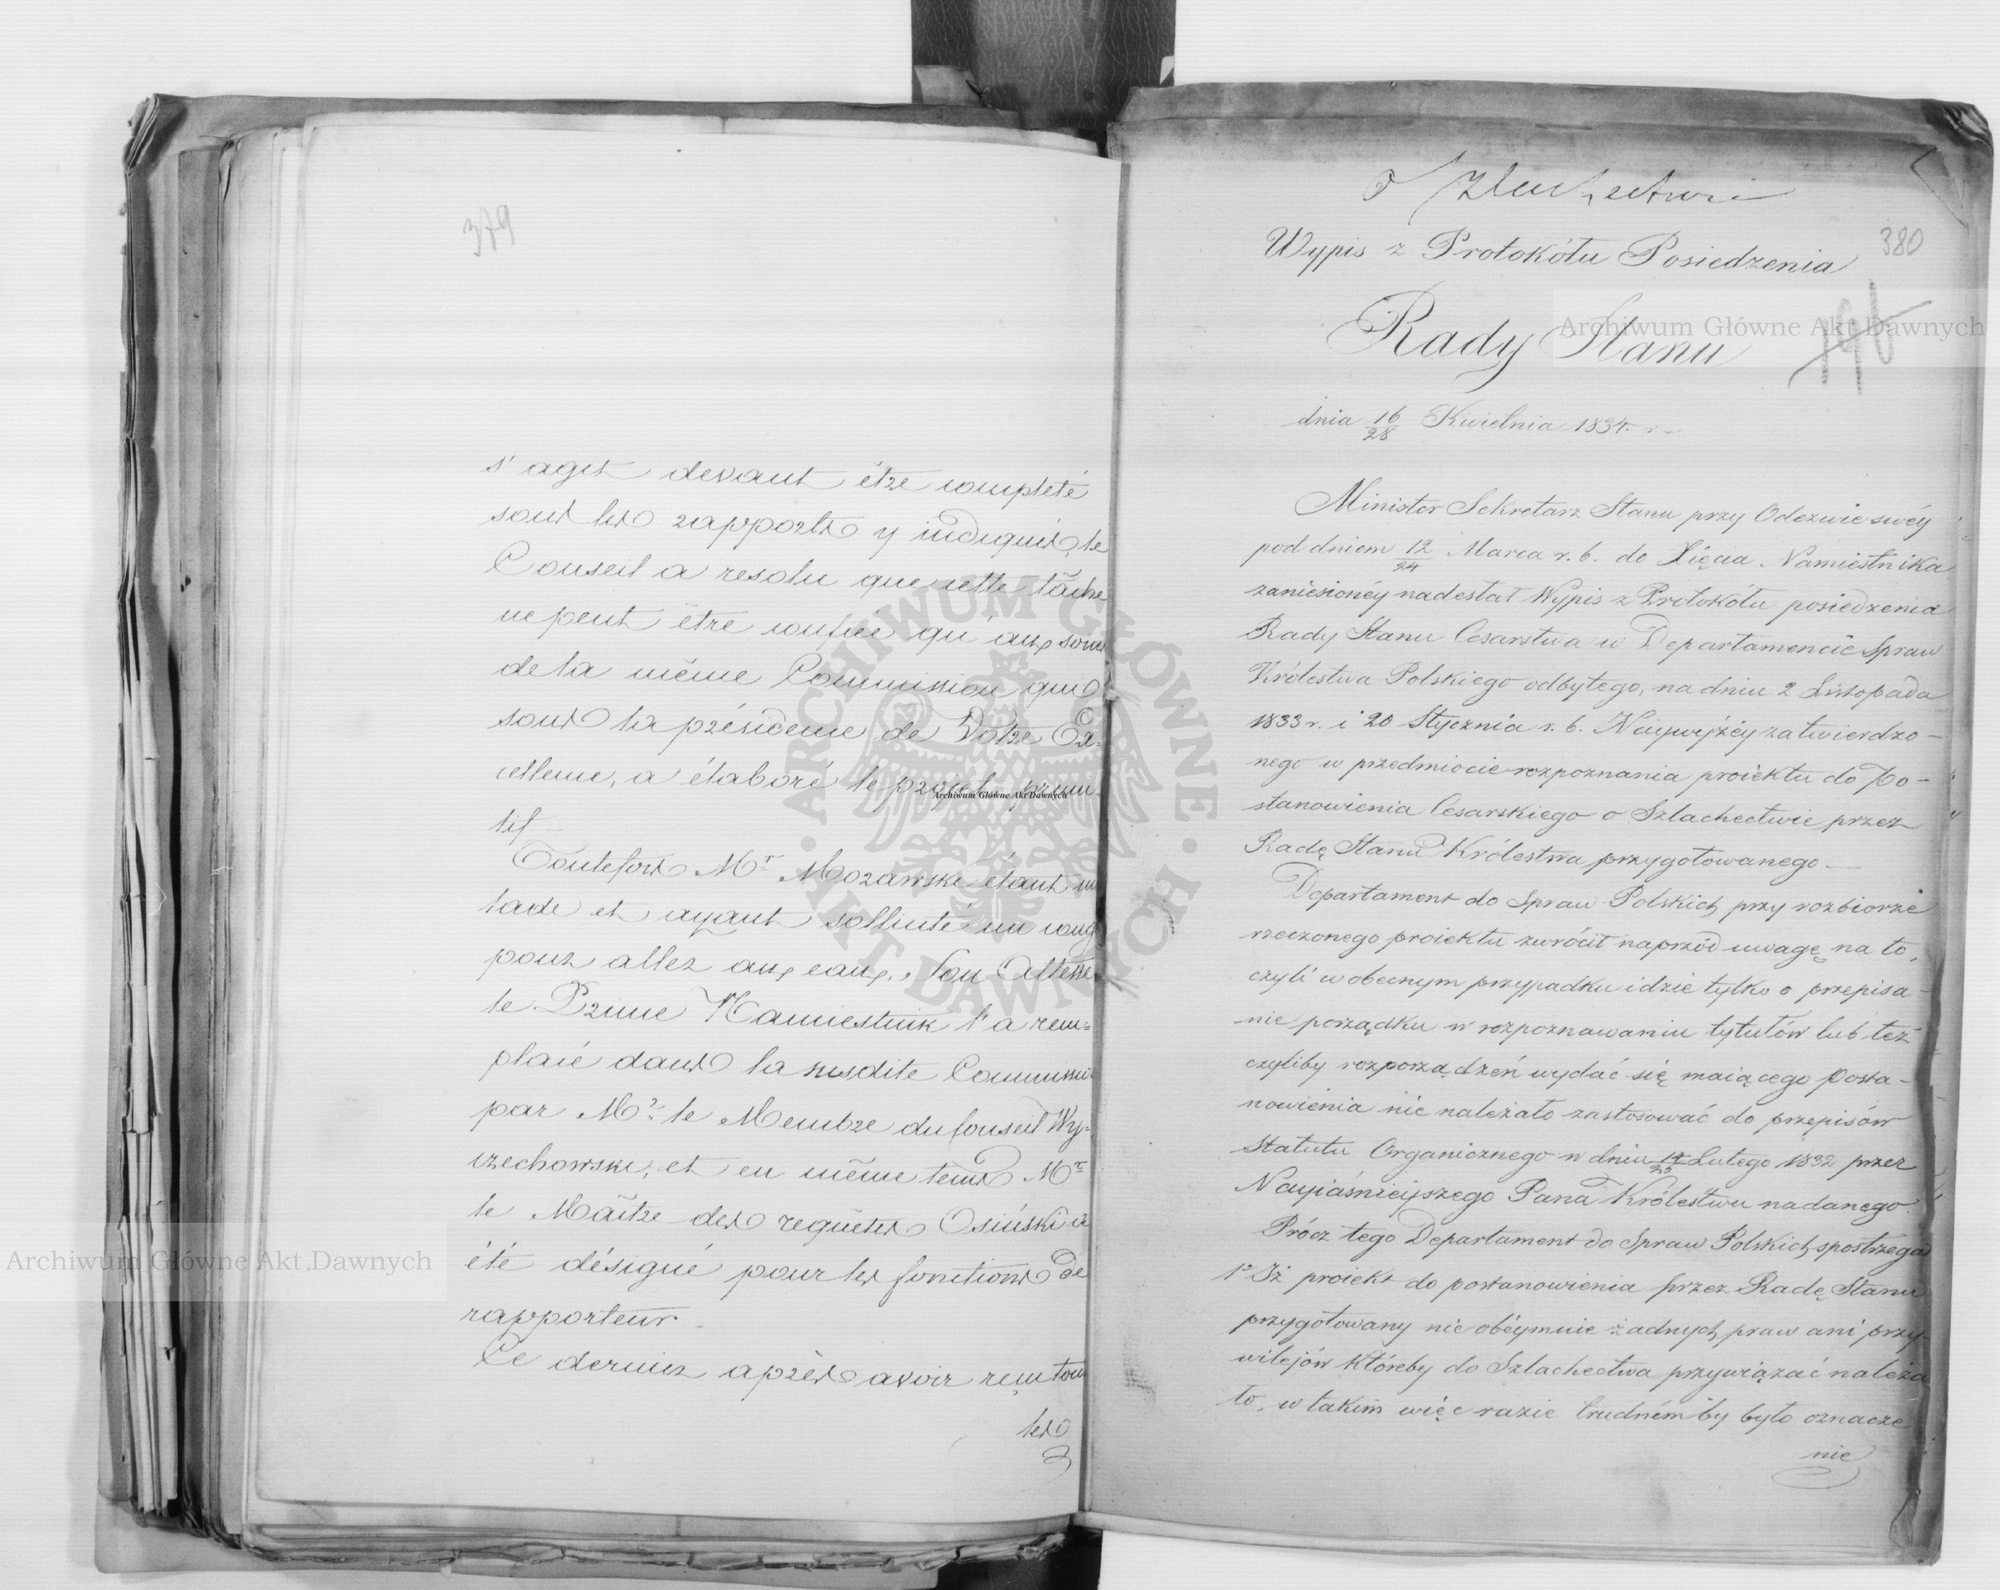 379
s'agit devant être complété
sous les rapports y indiqués, le
Conseil a resolu que cette tâche
ne peut être confiée qu'aux soins
de la même Commission qui
sous la présidence de Votre Ex-
cellence, a élaboré le projet primi-
tif
Toutefois Mr Morawski étant ma
lade et ayant sollicité un congé
pour aller aux eaux, Son Altesse
le Prince Namiestnik l'a rem=
placé dans la susdite Commission
par Mr le Membre du Conseil Wy=
czechowski, et en même tems Mr
le Maître des requêtes Osiński a
été désigné pour les fonctions de
rapporteur.
Ce dernier après avoir reçu tous
les
O Szlachectwie
380
Wypis z Protokółu Posiedzenia
Rady Stanu
196
dnia 16/28 Kwietnia 1834. r.
Minister Sekretarz Stanu przy Odezwie swéy
pod dniem 12/24 Marca r. b. do Xięcia Namiestnika
zaniesionéy nadesłał Wypis z Protokółu posiedzenia
Rady Stanu Cesarstwa w Departamencie Spraw
Królestwa Polskiego odbytego, na dniu 2 Listopada
1833 r. i 20 Stycznia r. b. Naywyżéy zatwierdzo-
nego w przedmiocie rozpoznania proiektu do Po-
stanowienia Cesarskiego o Szlachectwie przez
Radę Stanu Królestwa przygotowanego.
Departament do Spraw Polskich przy rozbiorze
rzeczonego proiektu zwrócił naprzód uwagę na to,
czyli w obecnym przypadku idzie tylko o przepisa-
nie porządku w rozpoznawaniu tytułów lub też
czyliby rozporządzeń wydać się maiącego posta-
nowienia nie należało zastosować do przepisów
Statutu Organicznego w dniu 14/26 Lutego 1832 przez
Nayiaśnieyszego Pana Królestwu nadanego.
Prócz tego Departament do Spraw Polskich spostrzega
1o Iż proiekt do postanowienia przez Radę Stanu
przygotowany nie obéymuie żadnych praw ani przy-
wilejów któreby do Szlachectwa przywiązać należa
ło, w takim więc razie trudném by było oznacze
nie
Archiwum Główne Akt Dawnych
Archiwum Główne Akt Dawnych
Archiwum Główne Akt Dawnych
ARCHIWUM GŁÓWNE AKT DAWNYCH